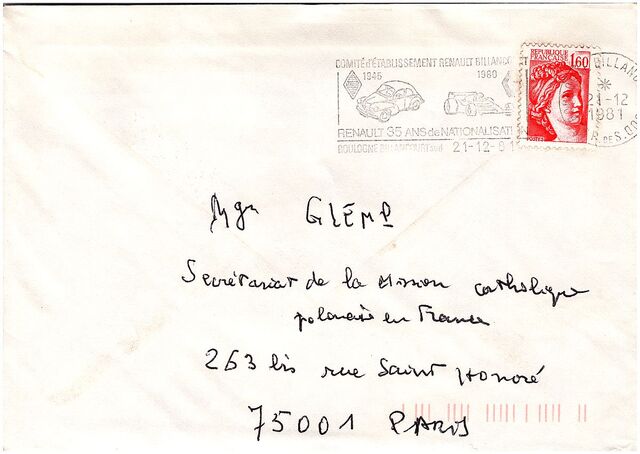 COMITÉ d'ÉTABLISSEMENT RENAULT BILLANC
1946 1980
RENAULT 35 ANS de NATIONALISAT
BOULOGNE BILLANCOURT sud 21-12-81
REPUBLIQUE
FRANÇAISE 1,60
POSTES
BILLANC
21-12
1981
Mgr GLEMP
Secrétariat de la Mission catholique
polonaise en France
263 bis rue Saint Honoré
75001 PARIS